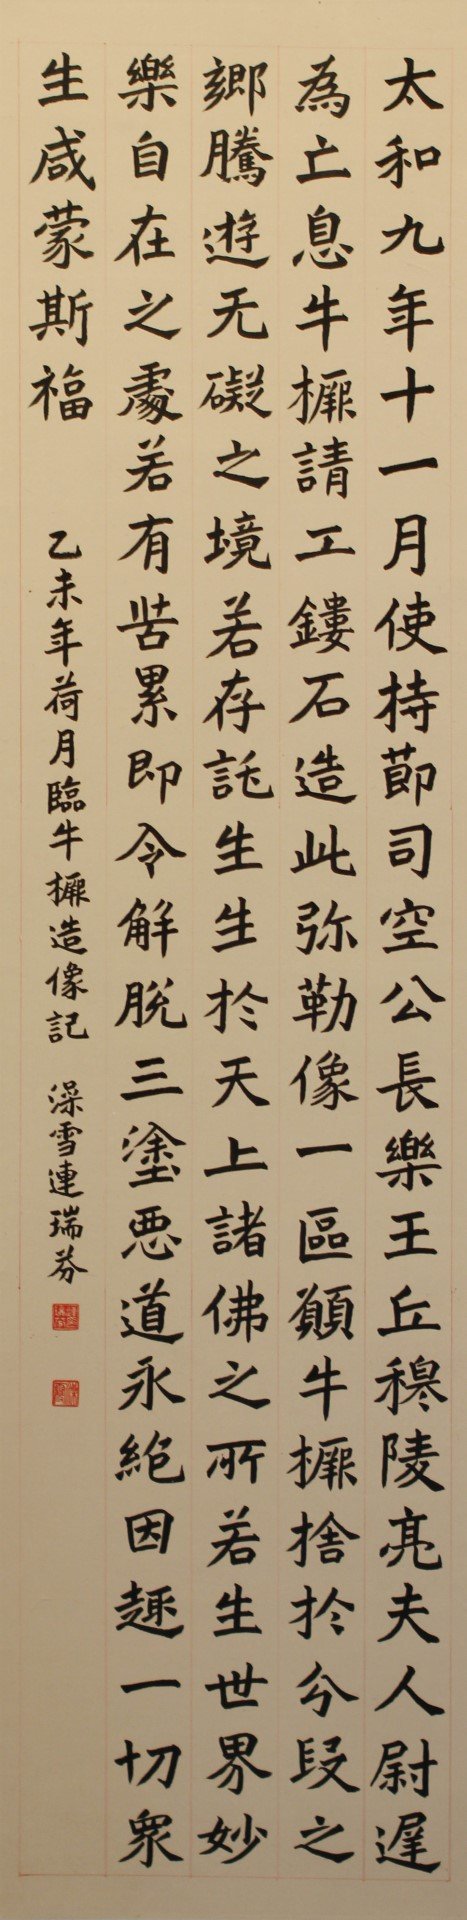 太和九年十一月使持節司空公長樂王丘穆陵亮夫人尉遲
為亡息牛橛請工鏤石造此弥勒像一區願牛橛捨於分段之
鄉騰遊无礙之境若存託生生於天上諸佛之所若生世界妙
樂自在之處若有苦累即令解脫三塗惡道永絕因趣一切衆
生咸蒙斯福
乙未年荷月臨牛橛造像記 澡雪連瑞芬